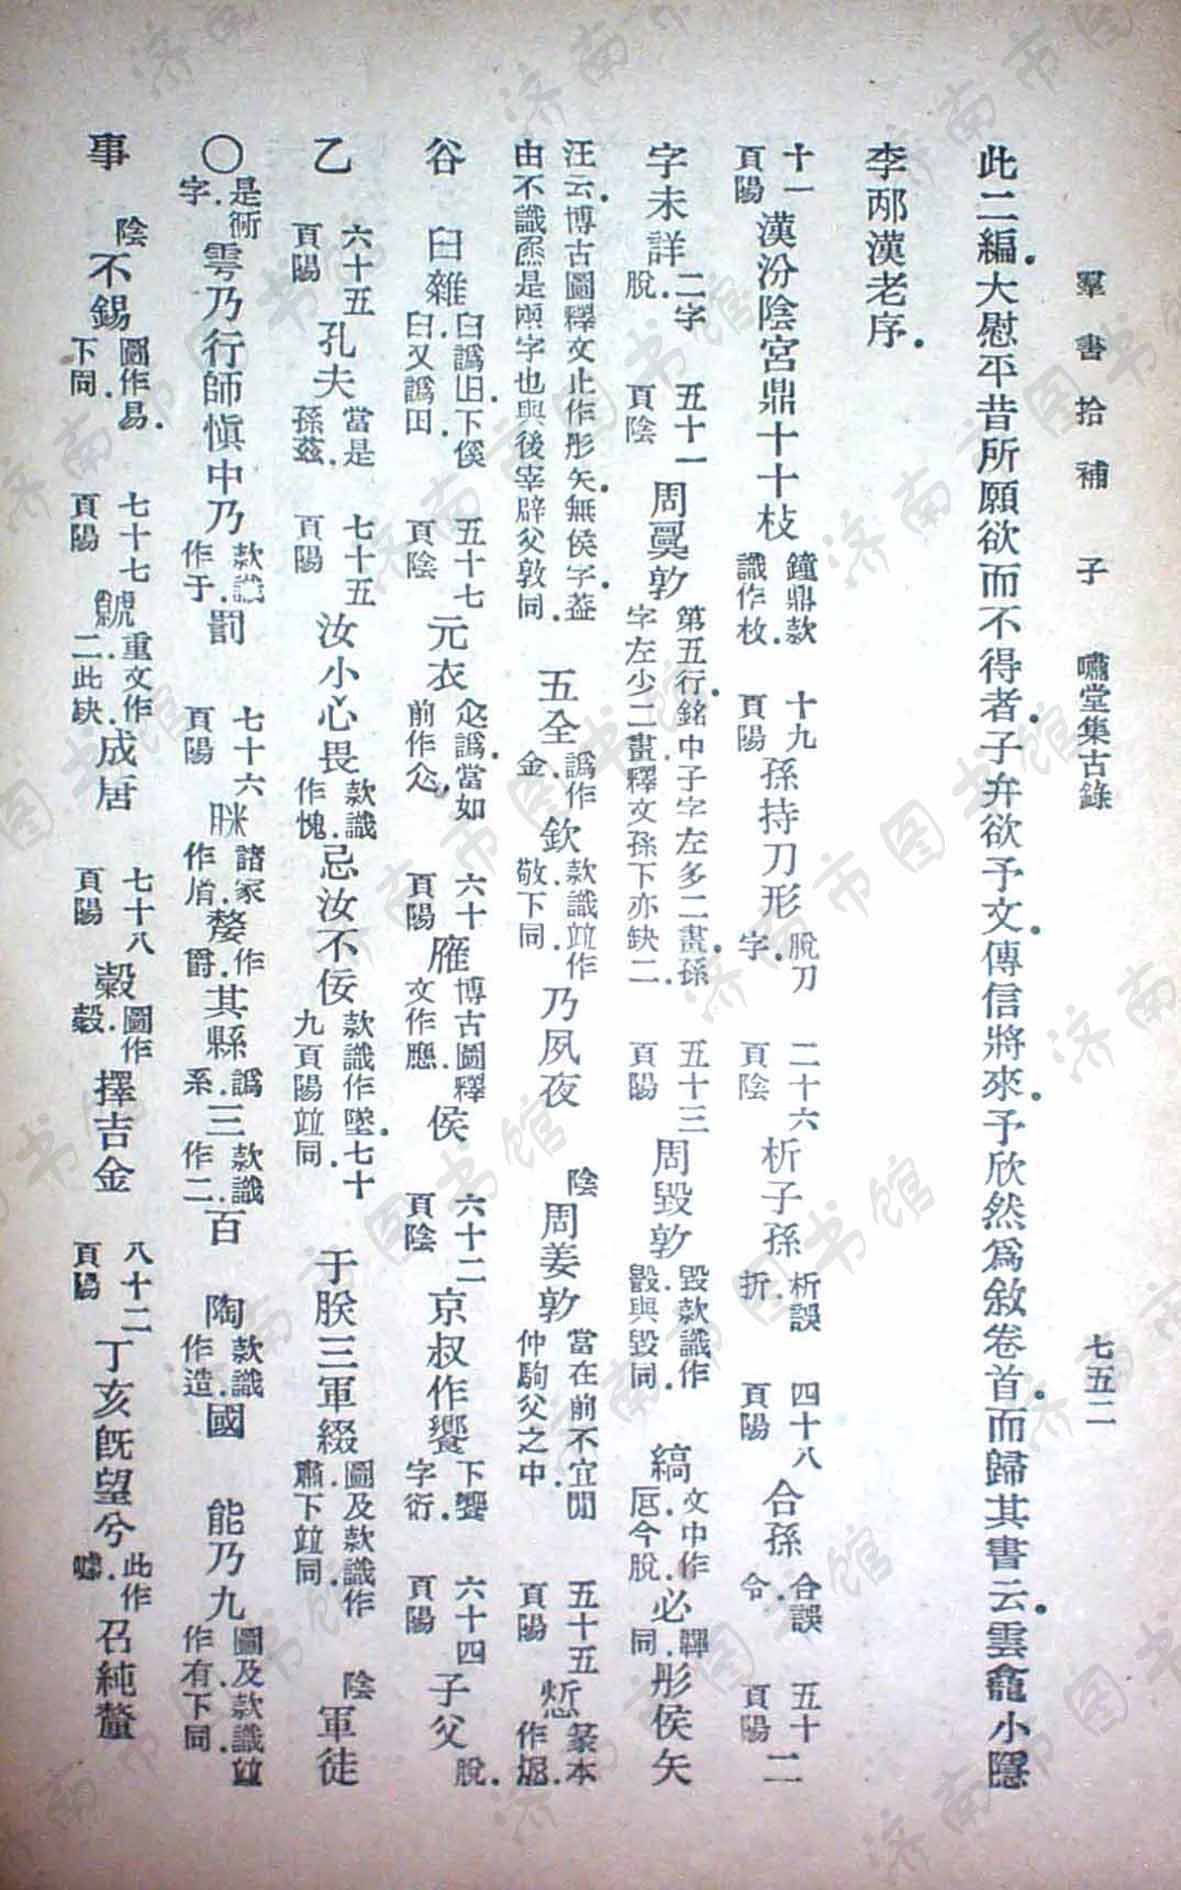 羣書拾補 子 嘯堂集古錄 七五二
此二編．大慰平昔所願欲而不得者．子弁欲予文．傳信將來．予欣然爲敘卷首．而歸其書云．雲龕小隱
李邴漢老序．
十一頁陽 漢汾陰宮鼎十十枝 鐘鼎款識作枚． 十九頁陽 孫持刀形 脫刀字． 二十六頁陰 析子孫 析誤折． 四十八頁陽 合孫 合誤令． 五十頁陽 二
字未詳 二字脫． 五十一頁陰 周敦 第五行．銘中子字左多二畫．孫字左少二畫．釋文孫下亦缺二． 五十三頁陽 周毀敦 毀款識作毇．與毀同． 縞 文中作㕂．今脫． 必 韠同． 彤侯矢
汪云．博古圖釋文止作彤矢．無侯字．葢由不識是兩字也．與後宰辟父敦同． 五全 譌作金． 欽 款識竝作敬．下同． 乃夙夜 陰 周姜敦 當在前．不宜閒仲駒父之中． 五十五頁陽 篆本作
谷 臼雜 臼譌旧．下傒臼又譌田． 五十七頁陰 元衣 譌．當如前作 六十頁陽 䧹 博古圖釋文作應． 侯 六十二頁陰 京叔作饗 下饗字衍． 六十四頁陽 子父 脫．
乙 六十五頁陽 孔夫 當是孫茲． 七十五頁陽 汝小心畏 款識作愧． 忌汝不佞 款識作墜．七十九頁陽竝同． 于朕三軍綴 圖及款識作肅．下竝同． 陰 軍徒
〇 是衕字． 雩乃行師愼中乃 款識作于． 罰 七十六頁陽 諸家作 𠩺 作爵． 其縣 譌系． 三 款識作二． 百 陶 款識作造． 國 能乃九 圖及款識竝作有．下同．
事 陰 不錫 圖作易．下同． 七十七頁陽 虩 重文作二．此缺． 成唐 七十八頁陽 糓 圖作穀． 擇吉金 八十二頁陽 丁亥旣望兮 此作 召純釐